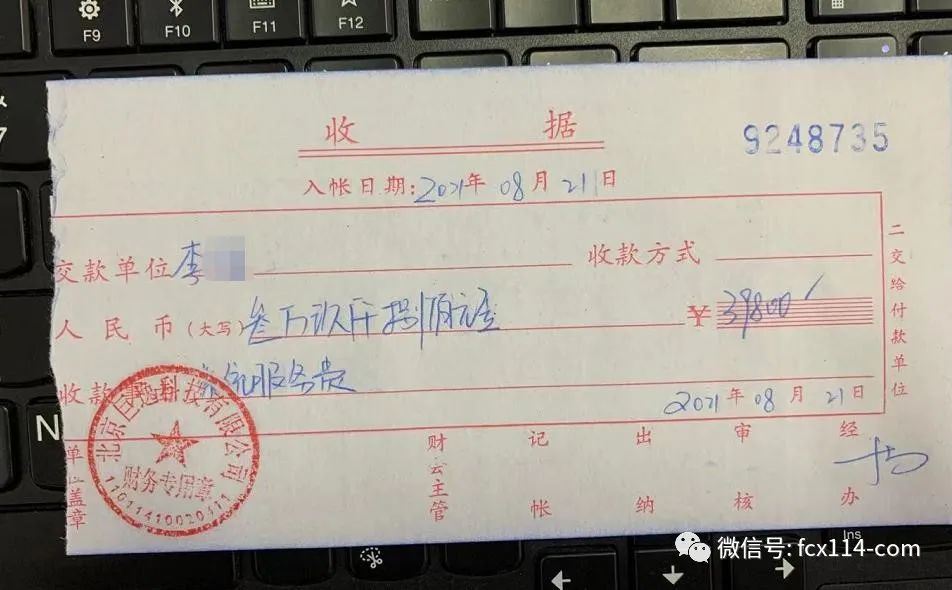 F9 F10 F11 F12
收 据
9248735
入帐日期:2021年 08月 21日
交款单位 李
收款方式
人民币(大写) 叁万玖仟捌佰元整 ¥ 39800
收款 服务费
2021年 08月 21日
二交给付款单位
北京 科技有限公司
财务专用章
单位盖章
财会主管
记帐
出纳
审核
经办
N
Ins
微信号: fcx114-com